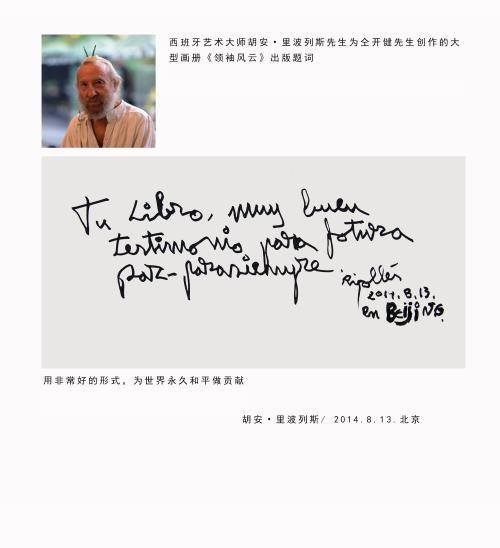 西班牙艺术大师胡安·里波列斯先生为仝开健先生创作的大
型画册《领袖风云》出版题词
Tu Libro, muy buen
testimonio para fotura
paz-parasiempre
Ripollés
2014.8.13.
en BEijiNG.
用非常好的形式，为世界永久和平做贡献
胡安·里波列斯/ 2014.8.13.北京